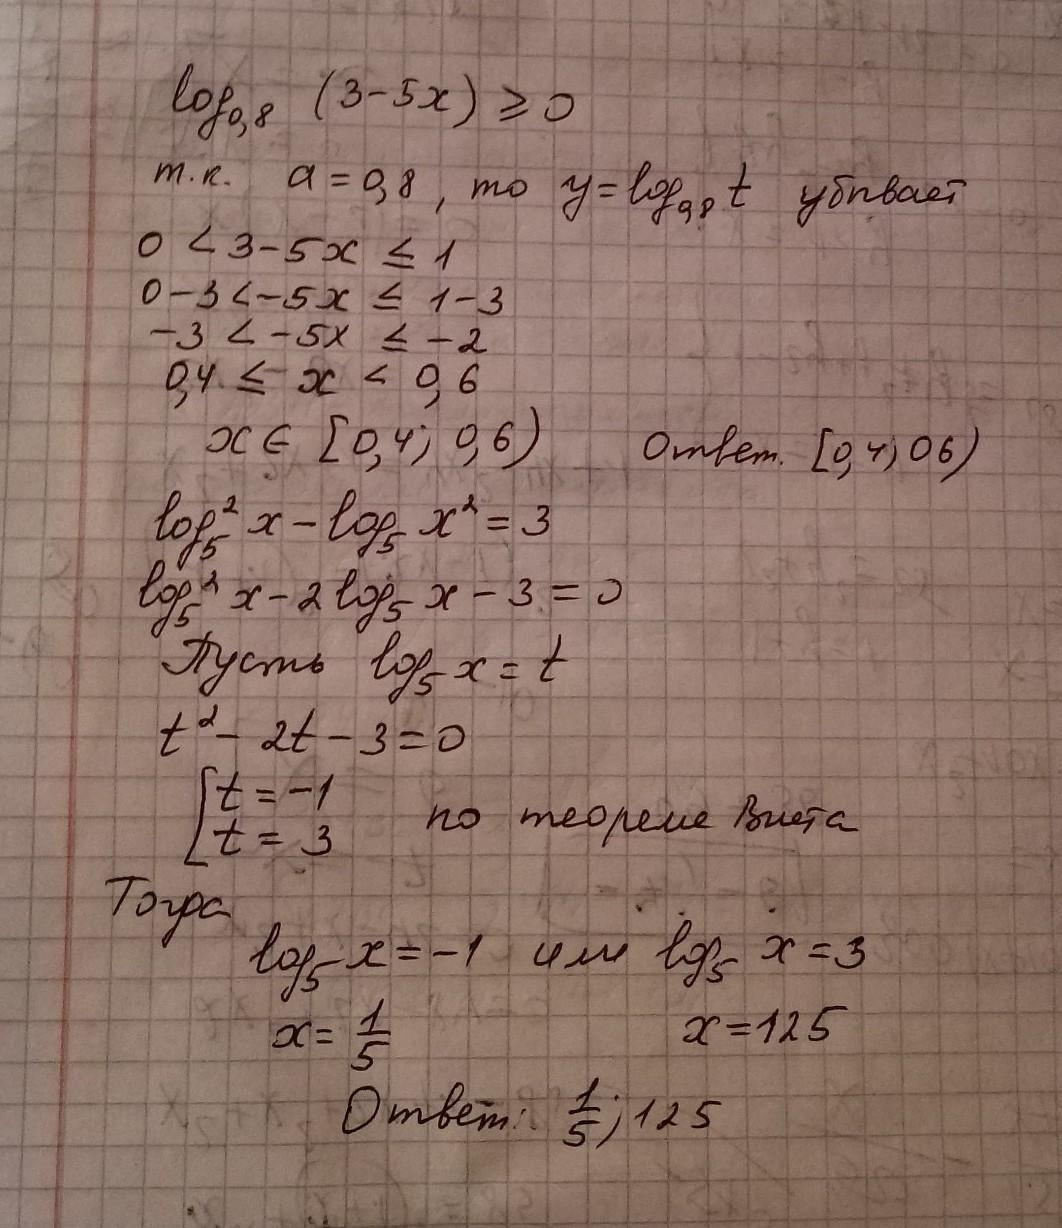 log₀,₈ (3-5x) ≥ 0
т.к. a = 0,8 , то y = log₀,₈ t убывает
0 < 3-5x ≤ 1
0-3 < -5x ≤ 1-3
-3 < -5x ≤ -2
0,4 ≤ x < 0,6
x ∈ [0,4; 0,6) Ответ. [0,4; 06)
log₅² x - log₅ x² = 3
log₅² x - 2 log₅ x - 3 = 0
Пусть log₅ x = t
t² - 2t - 3 = 0
[ t = -1
t = 3 по теореме Виета
Тогда
log₅ x = -1 или log₅ x = 3
x = 1/5 x = 125
Ответ: 1/5; 125